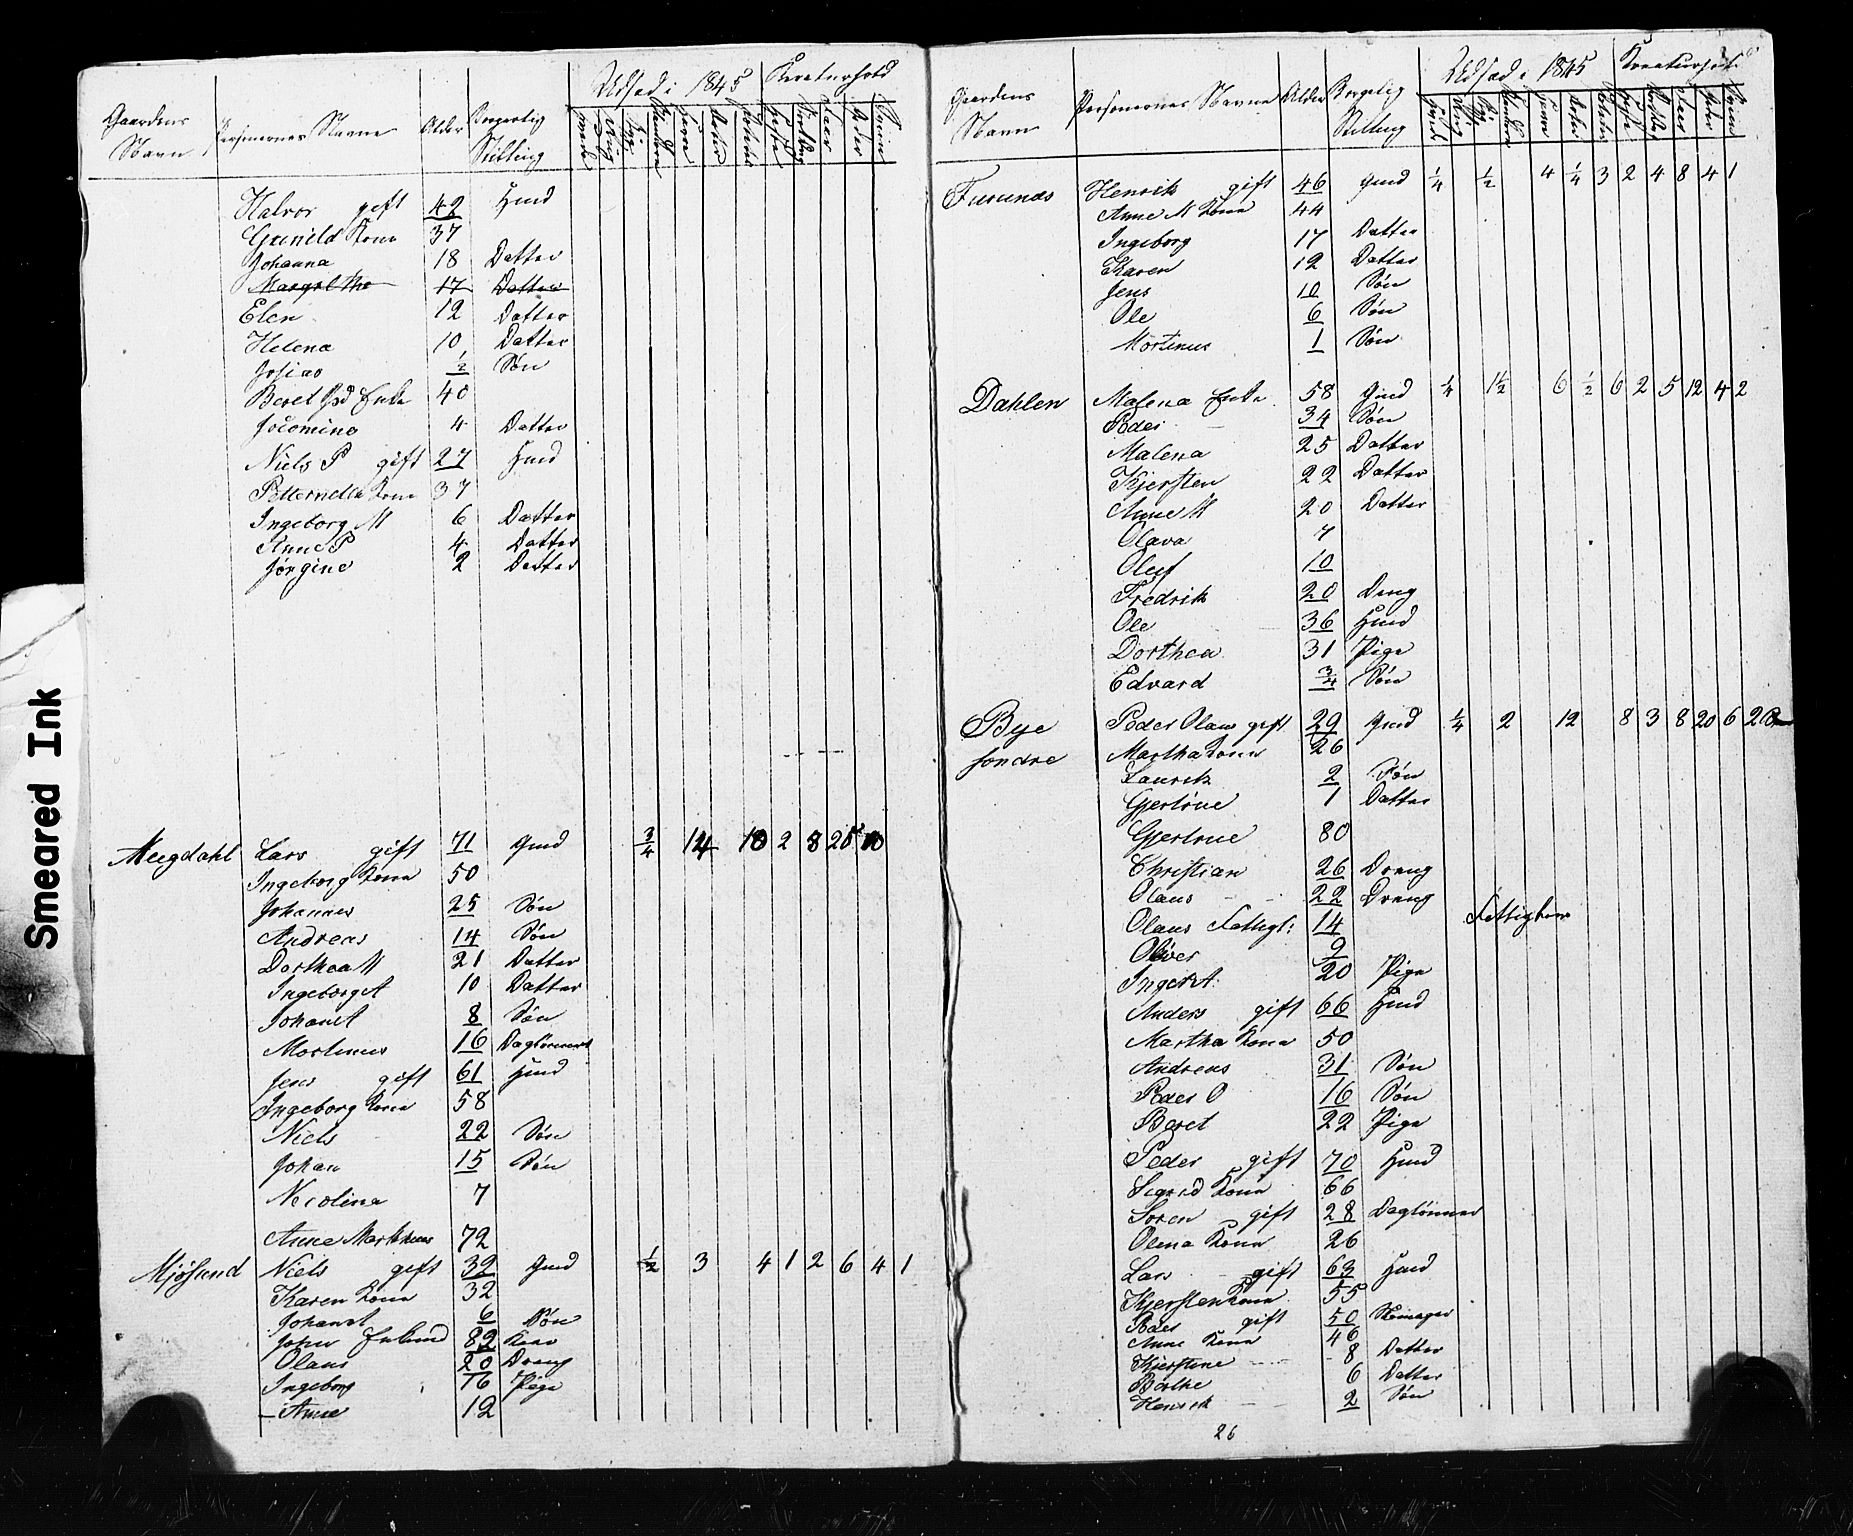 Smeared Ink
Gaardens Navn Personernes Navne Alder Borgerlig Stilling Udsæd i 1845 Kreaturhold
Halvor gift 42 Huusd
Gunild Kone 37
Johanna 18 Datter
Margrethe 17 Datter
Elen 12 Datter
Helena 10 Datter
Josias ½ Søn
Beret Enke 40
Jocomina 4 Datter
Niels P gift 27 Huusd
Petternella Kone 37
Ingeborg M 6 Datter
Anne P 4 Datter
Jørgine 2 Datter
Megdahl Lars gift 71 Gmd ¾ 14 10 2 8 25 10
Ingeborg Kone 50
Johannes 25 Søn
Andreas 14 Søn
Dorthea M 21 Datter
Ingeborg A 10 Datter
Johan A 8 Søn
Mortinus 16
Jens gift 61 Huusd
Ingeborg Kone 58
Niels 22 Søn
Johan 15 Søn
Necolina 7
Anne 72
Mjøsund Niels gift 39 Gmd ½ 3 4 1 2 6 4 1
Karen Kone 32
Johan A 6 Søn
John Enkmd 82
Olaus 20 Dreng
Ingeborg 16 Pige
Anne 12
Gaardens Navn Personernes Navne Alder Borgerlig Stilling Udsæd i 1845 Kreaturhold
Furunes Henrik gift 46 Gmd ¼ ½ 4 ¼ 3 2 4 8 4 1
Anne M Kone 44
Ingeborg 17 Datter
Karen 12 Datter
Jens 10 Søn
Ole 6 Søn
Mortinus 1 Søn
Dahlen Malena Enke 58 Gmd ¼ 1½ 6 ½ 6 2 5 12 4 2
Peder 34 Søn
Malena 25 Datter
Kjersten 22 Datter
Anne M 20 Datter
Olava 7
Oluf 10
Fredrik 20 Dreng
Ole 36 Huusd
Dorthea 31 Pige
Edvard ¾ Søn
Bye søndre Peder Olaus gift 29 Gmd ¼ 2 12 8 3 8 20 6 2
Martha Kone 26
Lauritz 2 Søn
Gjertine 1 Datter
Gjertrue 80
Christian 26 Dreng
Olaus 22 Dreng
Olaus Fattigl: 14 Fattiglem
Oliver 9
Inger A: 20 Pige
Anders gift 66 Huusd
Martha Kone 50
Andreas 31 Søn
Peder O 16 Søn
Beret 22 Pige
Peder gift 70 Huusd
Sigrid Kone 66
Soren gift 28 Daglønner
Olena Kone 26
Lars gift 63 Huusd
Kjersten Kone 55
Peder gift 50 Skomager
Anne Kone 46
Kjerstine 8 Datter
Berthe 6 Datter
Henrik 2 Søn
26